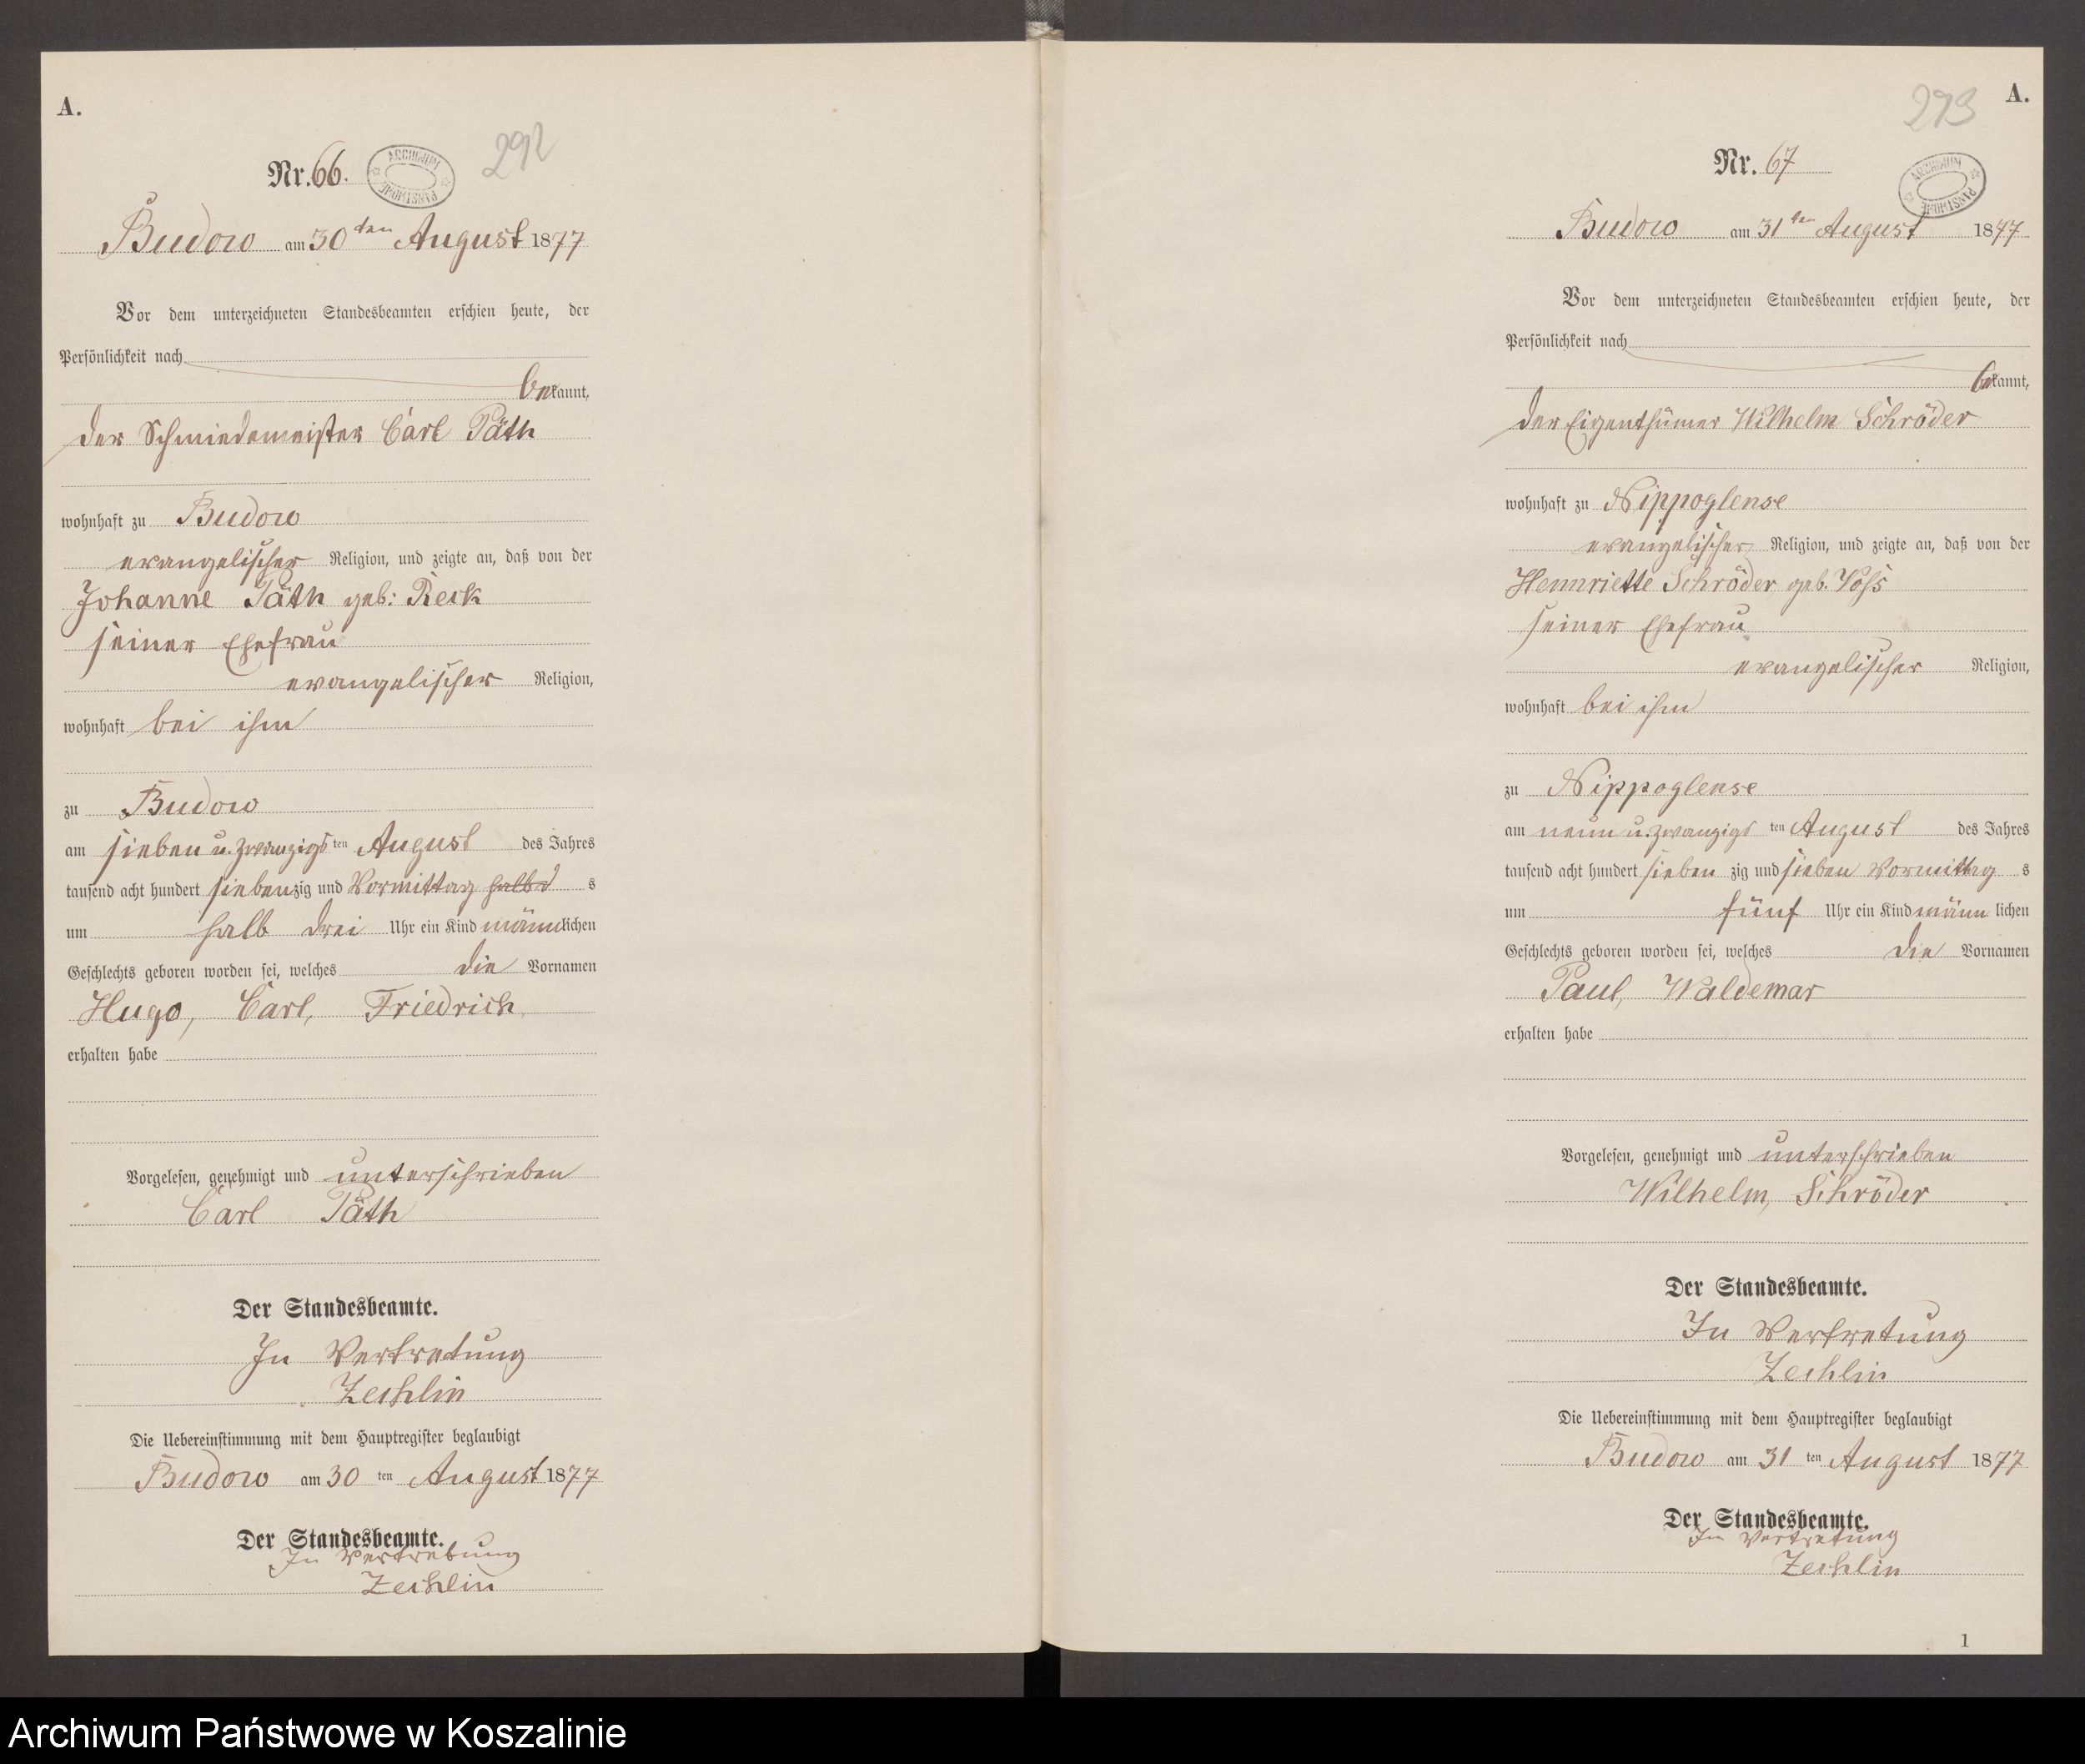 A.
Nr. 66.
ARCHIWUM PAŃSTWOWE
292
Budow am 30ten August 1877
Vor dem unterzeichneten Standesbeamten erschien heute, der
Persönlichkeit nach
bekannt,
der Schmiedemeister Carl Päth
wohnhaft zu Budow
evangelischer Religion, und zeigte an, daß von der
Johanne Päth geb: Reck
seiner Ehefrau
evangelischer Religion,
wohnhaft bei ihm
zu Budow
am sieben u. zwanzigs ten August des Jahres
tausend acht hundert siebenzig und Vormittag halbd s
um halb drei Uhr ein Kind männlichen
Geschlechts geboren worden sei, welches die Vornamen
Hugo, Carl, Friedrich
erhalten habe
Vorgelesen, genehmigt und unterschrieben
Carl Päth
Der Standesbeamte.
In Vertretung
Zechlin
Die Uebereinstimmung mit dem Hauptregister beglaubigt
Budow am 30 ten August 1877
Der Standesbeamte.
In Vertretung
Zechlin
A.
293
Nr. 67
ARCHIWUM PAŃSTWOWE
Budow am 31ten August 1877
Vor dem unterzeichneten Standesbeamten erschien heute, der
Persönlichkeit nach
bekannt,
der Eigenthümer Wilhelm Schröder
wohnhaft zu Nippoglense
evangelischer Religion, und zeigte an, daß von der
Hennriette Schröder, geb. Voß
seiner Ehefrau
evangelischer Religion,
wohnhaft bei ihm
zu Nippoglense
am neun u. zwanzigs ten August des Jahres
tausend acht hundert sieben zig und sieben Vormittag s
um fünf Uhr ein Kind männ lichen
Geschlechts geboren worden sei, welches die Vornamen
Paul, Waldemar
erhalten habe
Vorgelesen, genehmigt und unterschrieben
Wilhelm, Schröder
Der Standesbeamte.
In Vertretung
Zechlin
Die Uebereinstimmung mit dem Hauptregister beglaubigt
Budow am 31 ten August 1877
Der Standesbeamte.
In Vertretung
Zechlin
1
Archiwum Państwowe w Koszalinie